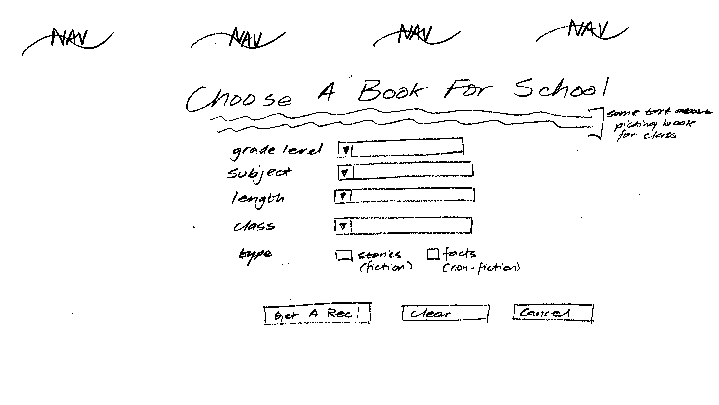 NAV NAV NAV NAV
Choose A Book For School
some text about
picking book
for class
grade level
subject
length
class
type
stories
(fiction)
facts
(non-fiction)
Get A Rec!
Clear
Cancel